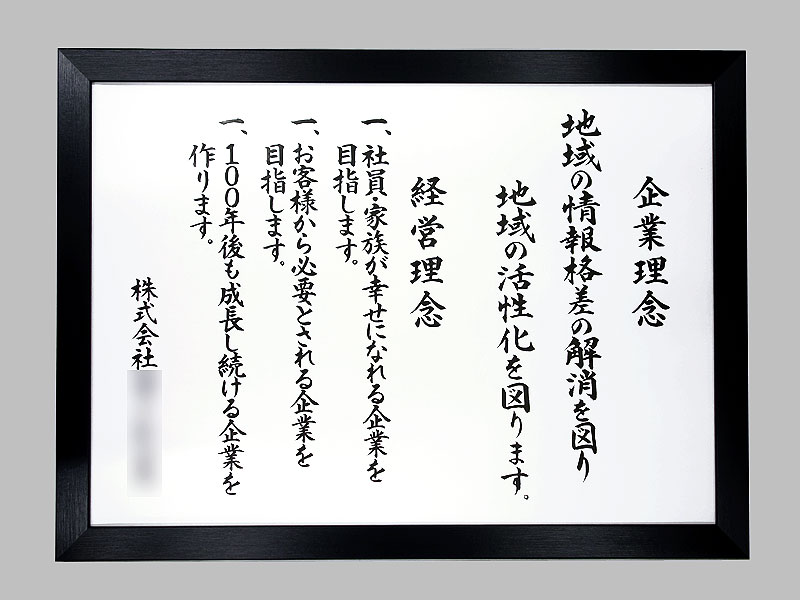 企業理念
地域の情報格差の解消を図り
地域の活性化を図ります。
経営理念
一、社員・家族が幸せになれる企業を
目指します。
一、お客様から必要とされる企業を
目指します。
一、100年後も成長し続ける企業を
作ります。
株式会社